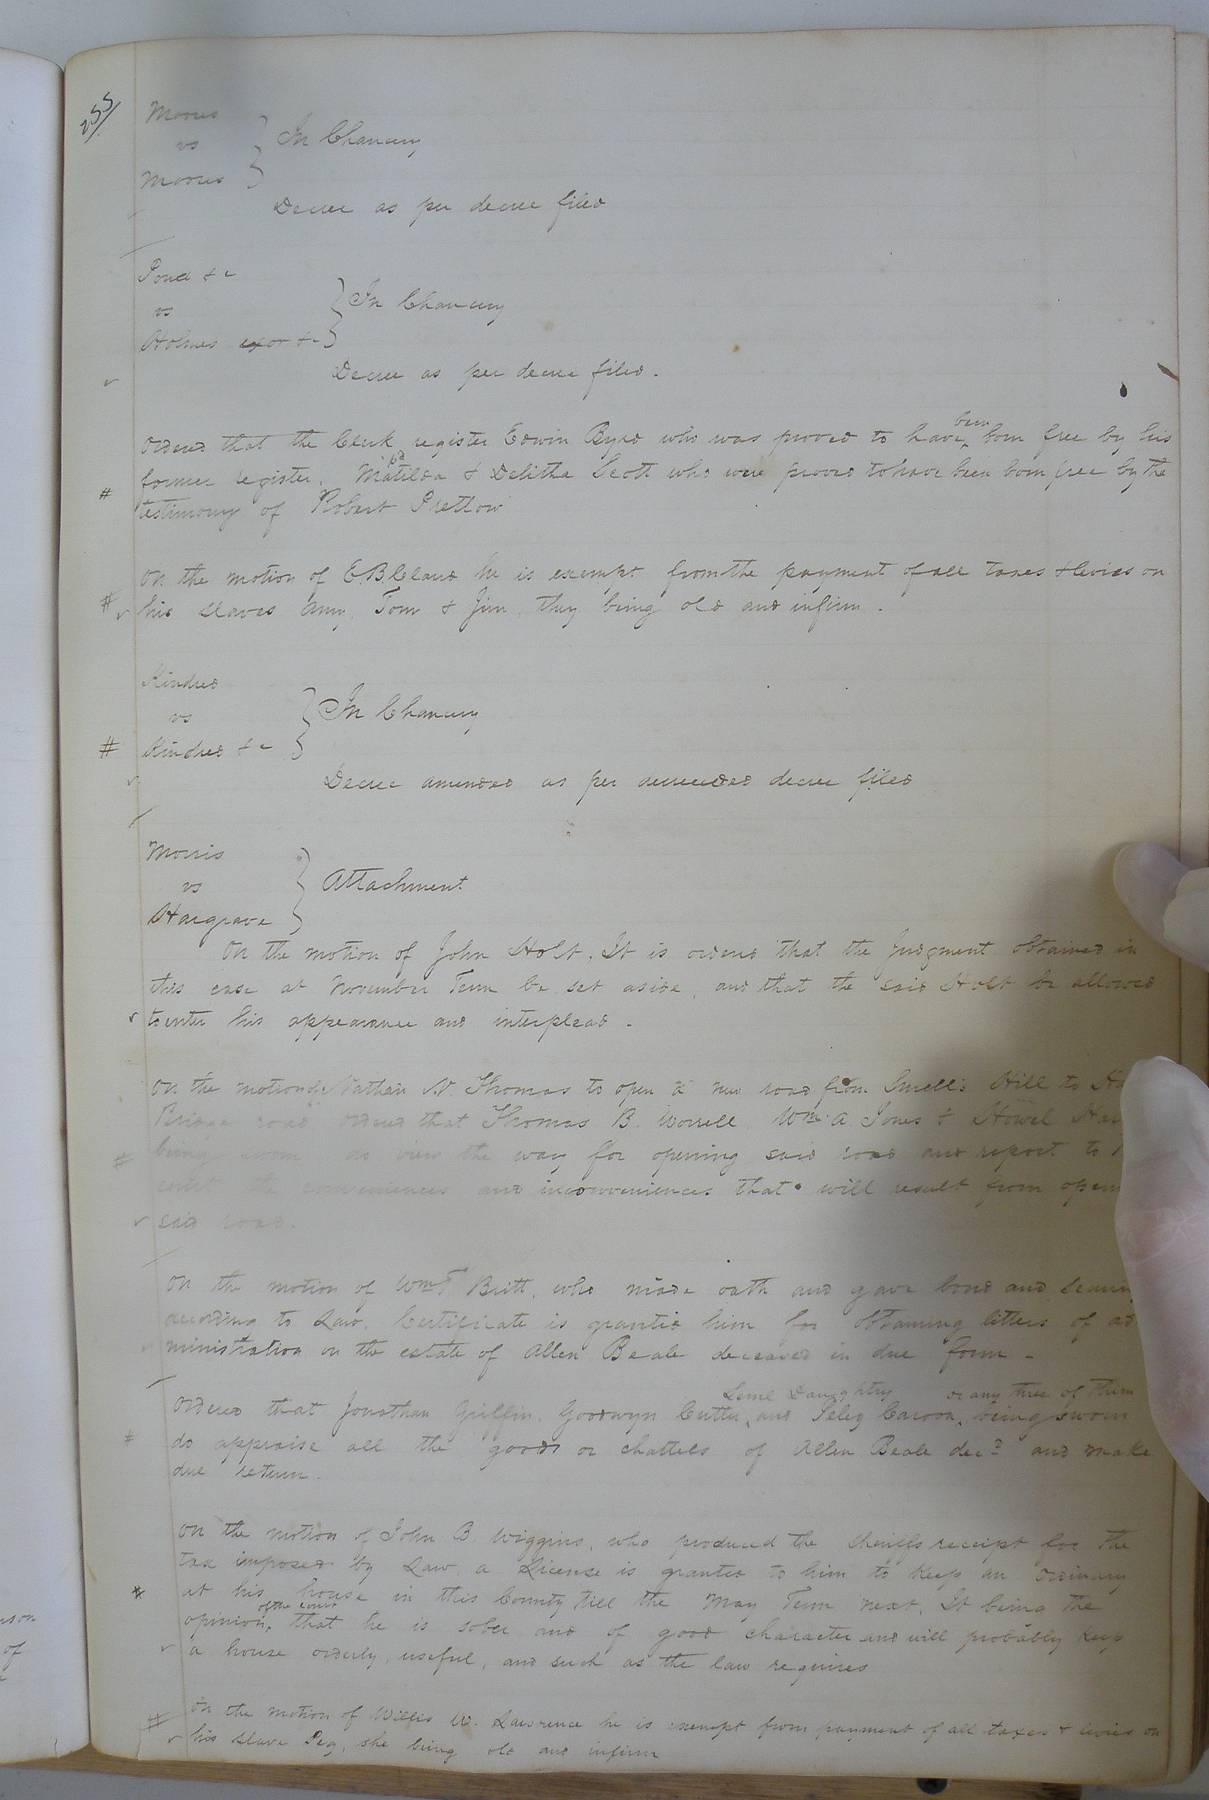 255/
Moores
vs
Moores
In Chancery
Decree as per decree filed
Pond &c
vs
Holmes exor &c
In Chancery
Decree as per decree filed.
Ordered that the Clerk register Edwin Byrd who was proved to have been born free by his
former register. Matilda & Delitha Scott who were proved to have been born free by the
testimony of Robert Pretlow
On the motion of E. B. Claud he is exempt from the payment of all taxes & levies on
his slaves Amy, Tom & Jim, they being old and infirm.
Kindred
vs
Kindred &c
In Chancery
Decree amended as per decree filed
Morris
vs
Hargrave
Attachment
On the motion of John Holt. It is ordered that the Judgment obtained in
this case at November Term be set aside, and that the said Holt be allowed
to enter his appearance and interplead.
On the motion of Nathan N. Thomas to open a new road from Smell's Hill to
Bridge road ordered that Thomas B. Worrell Wm. A Jones & Howel
being sworn do view the way for opening said road and report to
court the conveniences and inconveniences that will result from
said road.
On the motion of Wm T Britt, who made oath and gave bond and
according to Law. Certificate is granted him for obtaining letters of ad
ministration on the estate of Allen Beale deceased in due form.
Ordered that Jonathan Griffin, Goodwyn Cutler, Leml Daughtry and Peleg Carson, or any three of them being sworn
do appraise all the goods or chattels of Allen Beale decd and make
due return.
On the motion of John B Wiggins, who produced the Sheriffs receipt for the
tax imposed by Law a License is granted to him to keep an ordinary
at his house in this County till the May Term next, It being the
opinion of the court that he is sober and of good character and will probably keep
a house orderly, useful, and such as the law requires
On the motion of Willis W. Lawrence he is exempt from payment of all taxes & levies on
his slave Peg, she being old and infirm